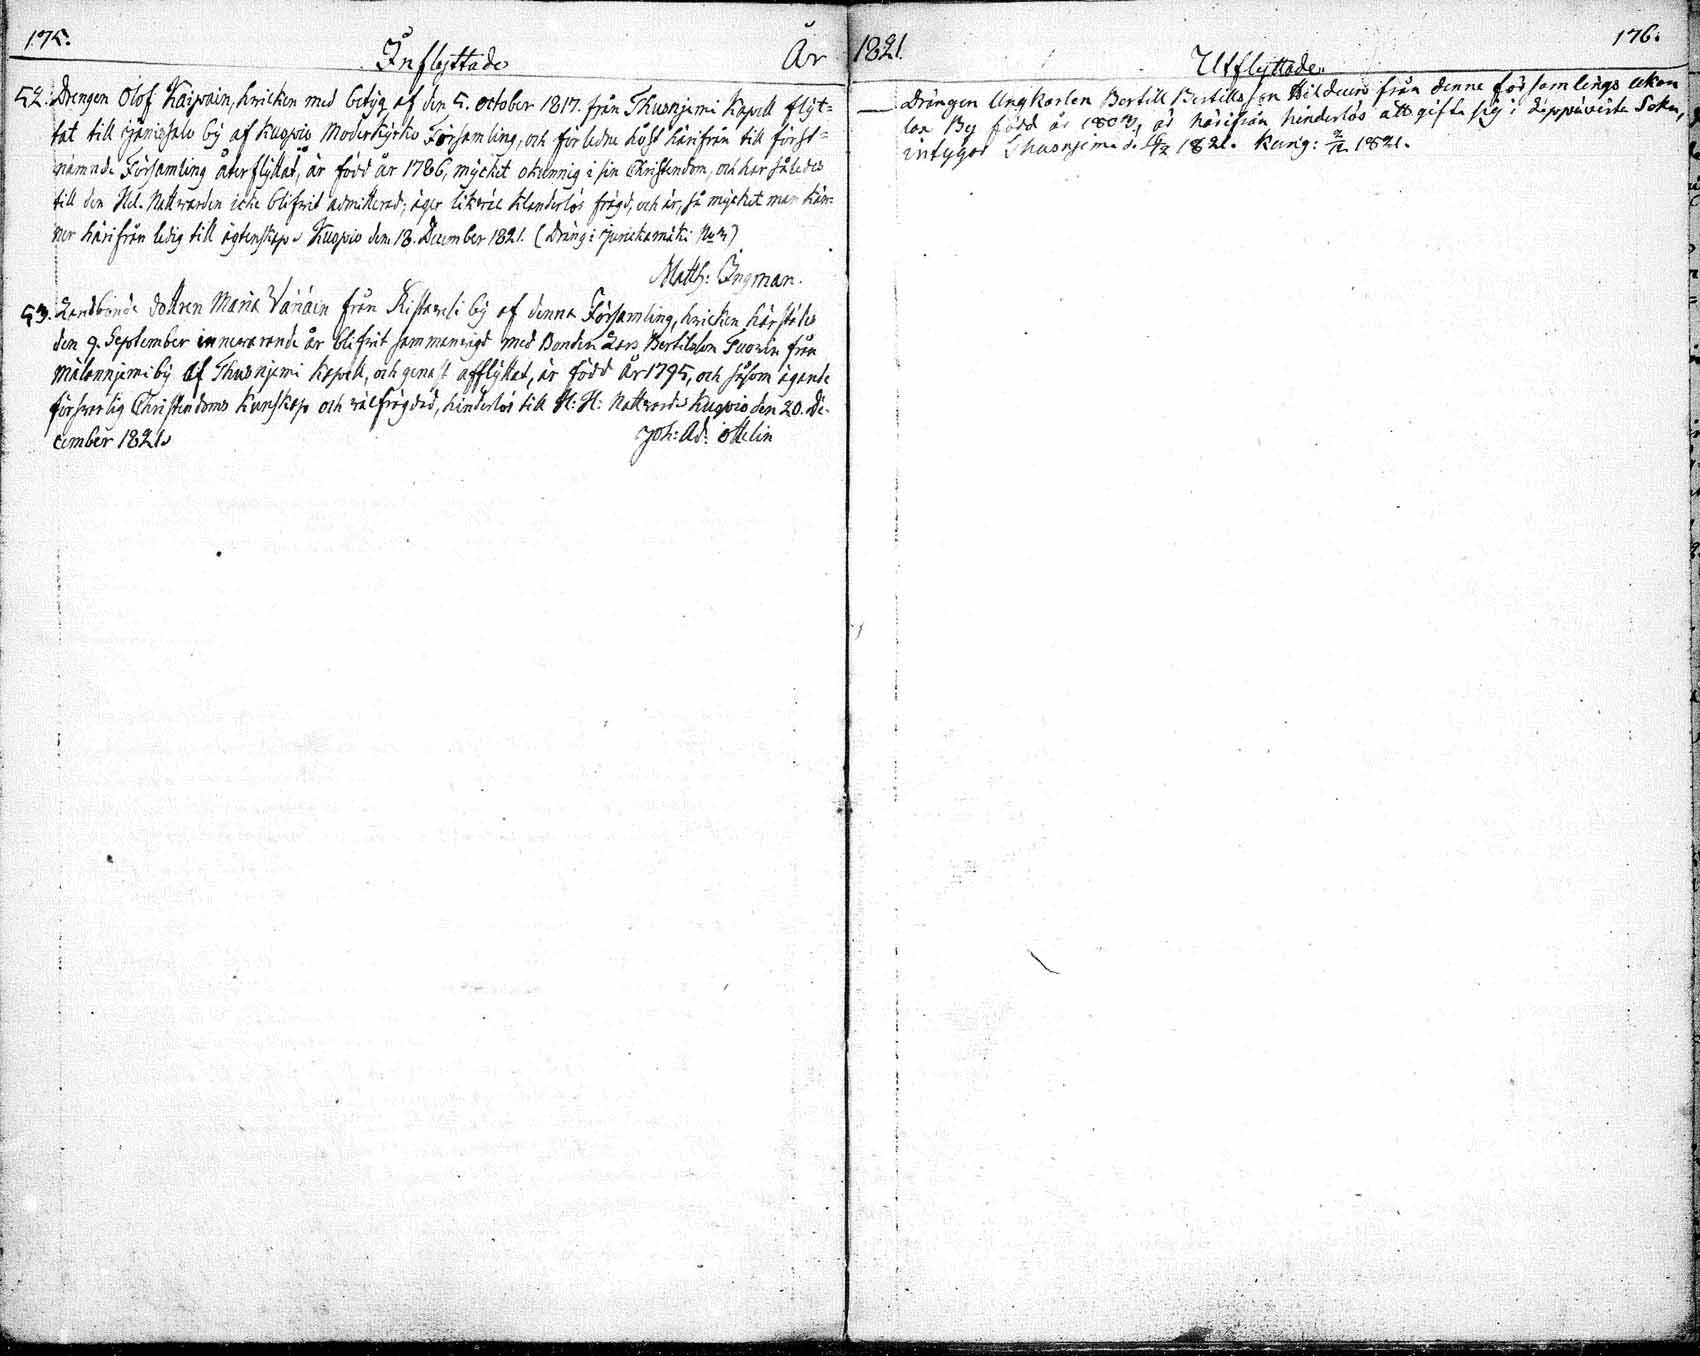 175.
Inflyttade
År
52. Drengen Olof Kaipain, hvicken med betyg af den 5. october 1817. från Thusnjemi Kapell flyt=
tat till by af Kuopio Moderkyrko Församling, och förledne höst härifrån till först=
nämnde Församling återflyttat, är född år 1786, mycket okunnig i sin Christendom, och har således
till den Hel. Nattvarden icke blifvit admitterad; äger likväl klanderlös frägd, och är, så mycket man kän=
ner härifrån ledig till ägtenskap. Kuopio dem 18. December 1821. (Dräng i Jurickamäki No 3)
Matth: Ingman.
53. Landbonde dottren Maria Vänäen från Ristaveli by af denna Församling, hvicken härstädes
den 9. September innevarande år blifvit sammanvigd med Bonden Lars Bertilsson Tuovin från
Målannjemi by af Thusnjemi Kapell, och genast afflyttat, är född År 1795, och såsom ägande
försvarlig Christendoms kunskap och välfrägdad, hinderlös till H: H: Nattvard. Kuopio den 20. De-
cember 1821.
Joh: Ad: Ottelin
1821.
176.
Utflyttade.
— Drängen Ungkarlen Bertill Bertills son från denne församlings Ukon
lax By född år 1803, är härifrån hinderlös att gifta sig i Läppävirta Sokn,
intygas Thusnjemi d. 1821. kung: 2/12 1821.